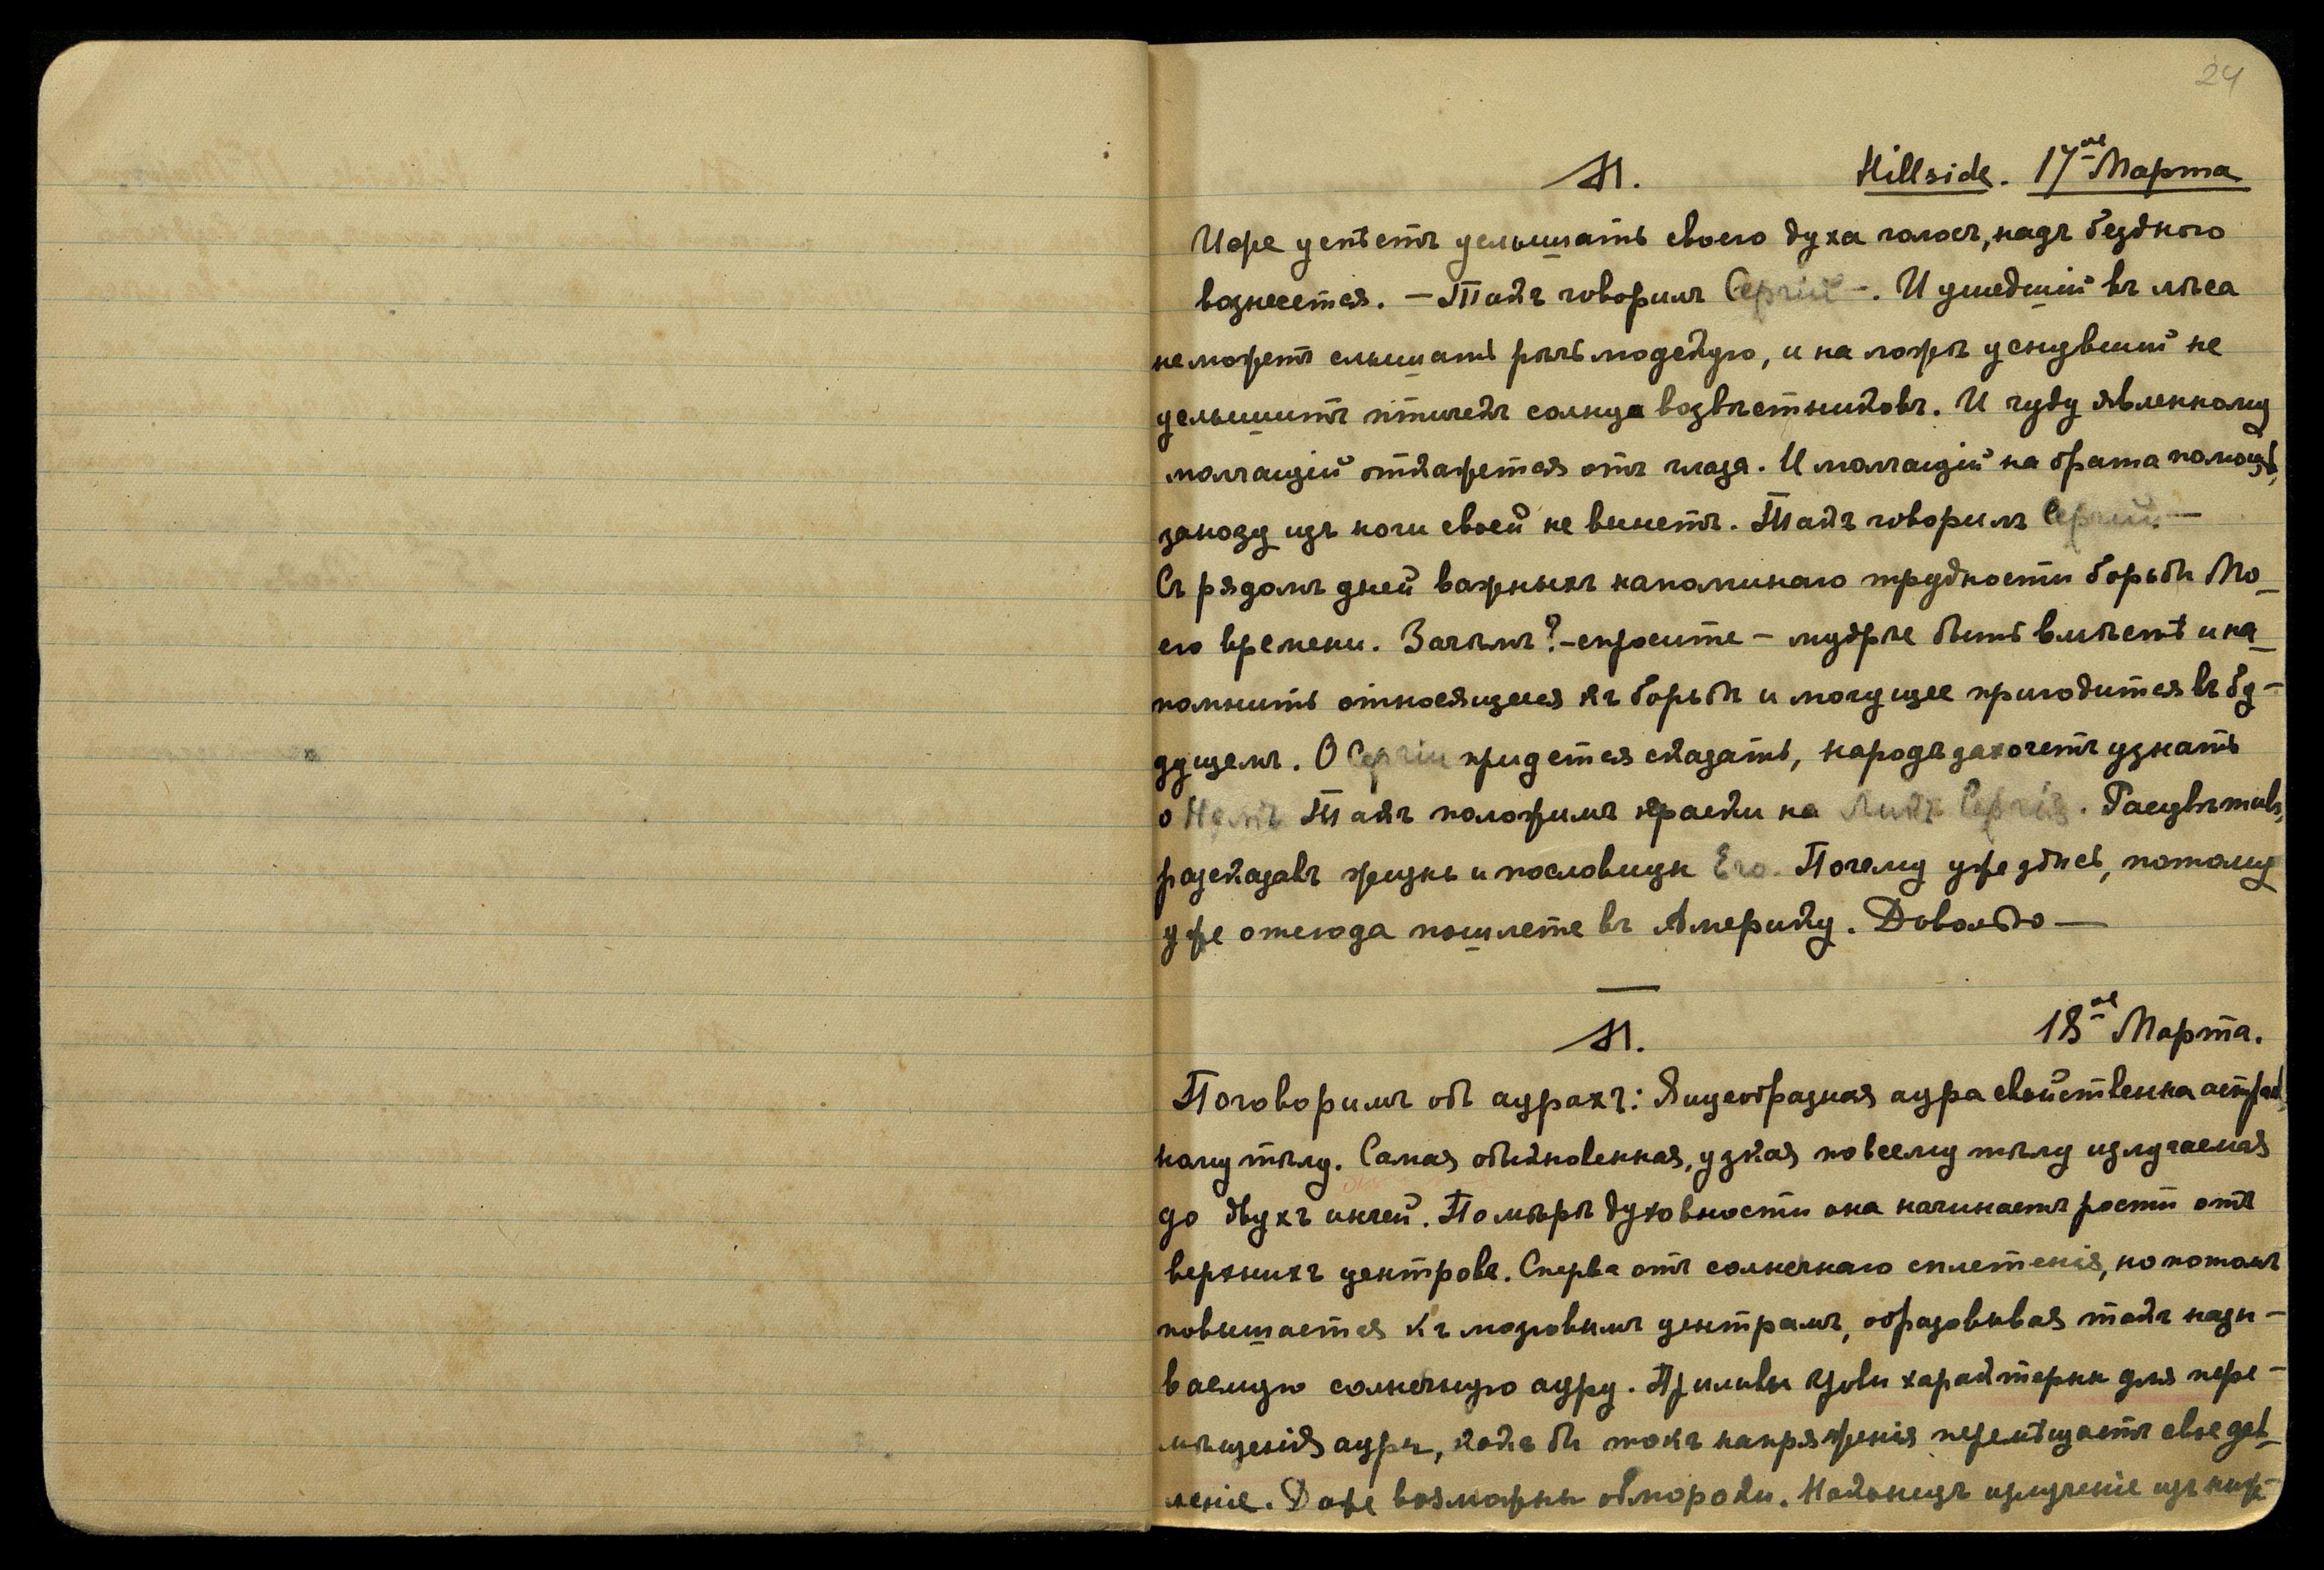 24
Hillside. 17ое Марта
Иоре успѣетъ услышать своего духа голосъ, надъ бездною
вознесется. — Такъ говорилъ Сергій —. И ушедшій въ лѣса
не можетъ слышать рѣчь людскую, и на ложѣ уснувшій не
услышитъ птичекъ солнца возвѣстниковъ. И чуду явленному
молчащій откажется отъ глаза. И молчащій на брата помощь,
занозу изъ ноги своей не вынетъ. Такъ говорилъ Сергій. —
Съ рядомъ дней важныхъ напоминаю трудности борьбы Мо-
его времени. Зачѣмъ? — спросите — мудрѣе быть вмѣстѣ и на-
помнить относящееся къ борьбѣ и могущее пригодится въ бу-
дущемъ. О Сергіи придется сказать, народъ захочетъ узнать
о Немъ Такъ положимъ краски на Ликъ Сергія. Расцвѣтивъ,
разсказавъ жизнь и пословицы Его. Почему уже здѣсь, потому
уже отсюда пошлете въ Америку. Довольно —
18ое Марта.
Поговоримъ объ аурахъ: Яйцеобразная аура свойственна астраль
ному тѣлу. Самая обыкновенная, узкая по всему тѣлу излучаемая
до двухъ инчей. По мѣрѣ духовности она начинаетъ рости отъ
верхнихъ центровъ. Сперва отъ солнечнаго сплетенія, но потомъ
повышается къ мозговымъ центрамъ, образовывая такъ назы-
ваемую солнечную ауру. Приливы крови характерны для пере-
мѣщенія ауры, какъ бы токъ напряженія перемѣщаетъ свое дав-
леніе. Даже возможны обмороки. Наконецъ излученіе изъ ниж-